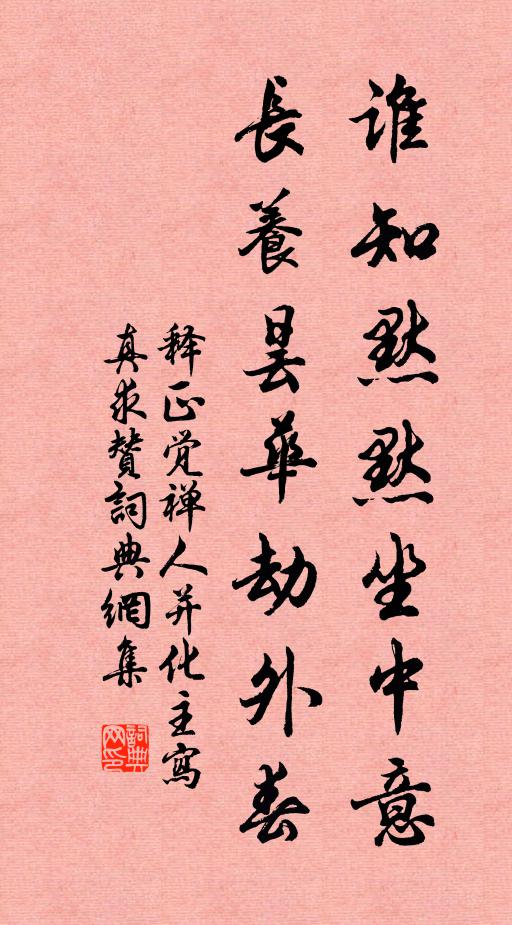 誰知默默坐中意
長養曇華劫外春
释正觉禅人并化主寫
真求贊詞典網集
詞典网印